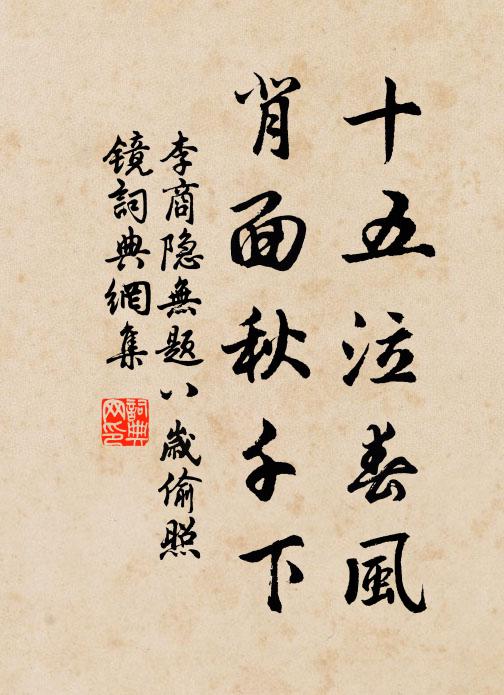 十五泣春風
背面秋千下
李商隐無題八歲偷照
鏡詞典網集
詞典
网印